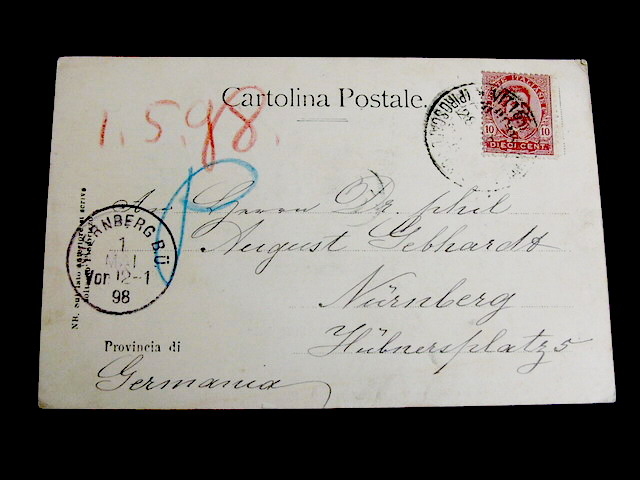 Cartolina Postale.
POSTE ITALIANE
10 10
DIECI CENT.
(PIROSCAFO
1.5.98.
NÜRNBERG B.Ü
1
MAI
Vor 12-1
98
An Herrn Dr. phil
August Gebhardt
Nürnberg
Hübnersplatz 5
Provincia di
Germania
NB. Sul lato anteriore si scrive